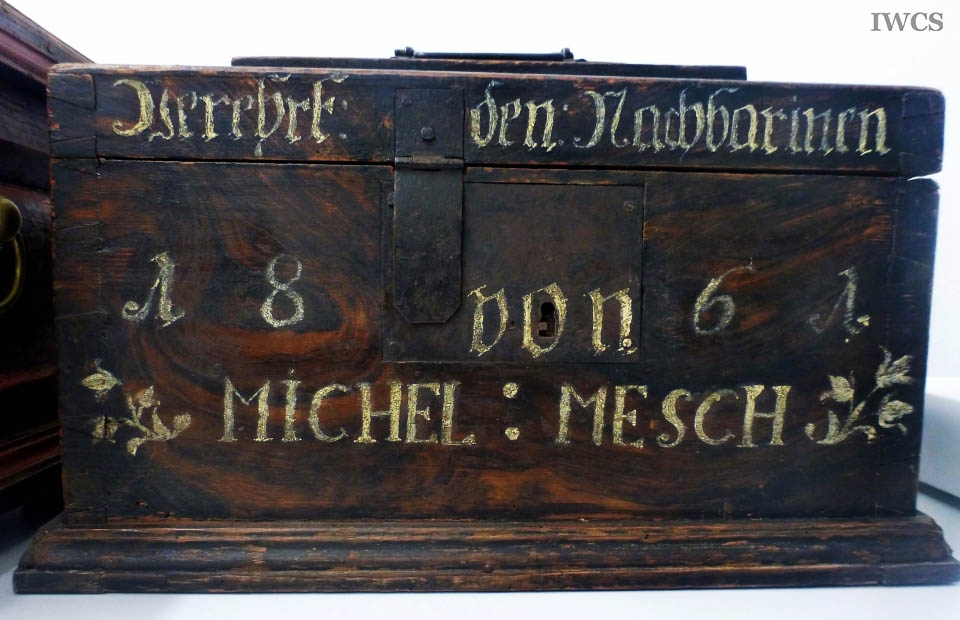 IWCS
Verehrt: den: Nachbarinen
18 von 61
MICHEL : MESCH